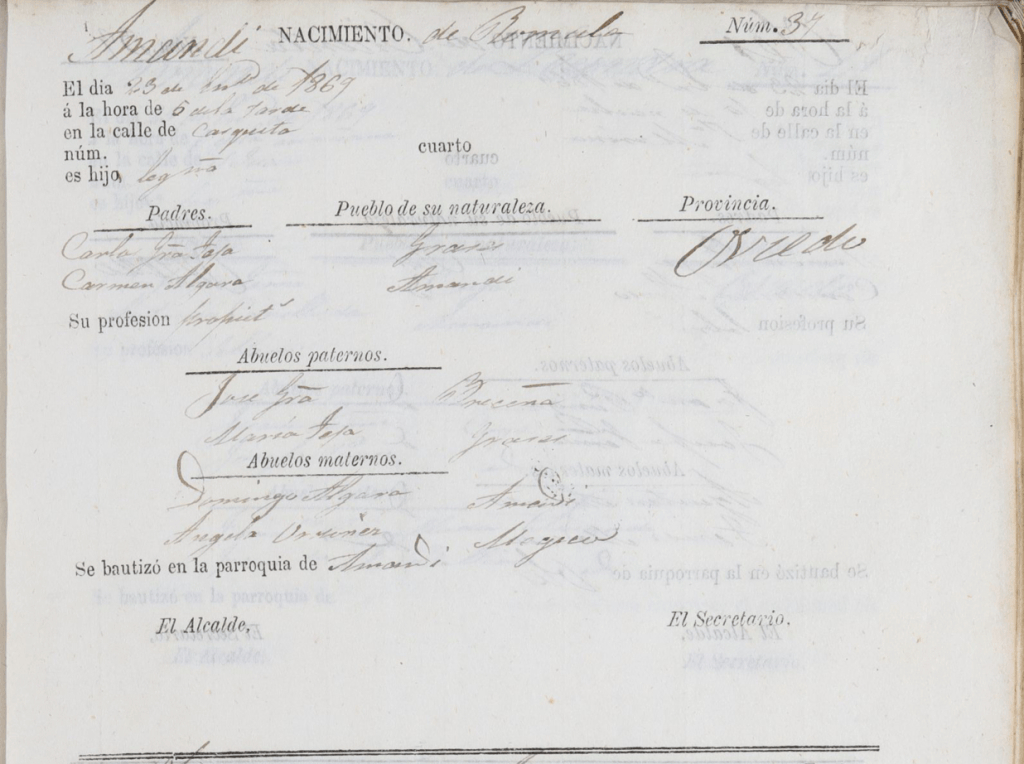 Amandi NACIMIENTO. de Romualo Núm. 37
El dia 23 de de 1869
á la hora de 5 de la tarde
en la calle de Casquita
núm. cuarto
es hijo legmo
Padres. Pueblo de su naturaleza. Provincia.
Carlo Gra Tosa Grases Oviedo
Carmen Algara Amandi
Su profesion propiet
Abuelos paternos.
José Gra Breceña
Maria Tosa Grases
Abuelos maternos.
Domingo Algara Amandi
Angela Ordiñez
Se bautizó en la parroquia de Amandi
El Alcalde, El Secretario.